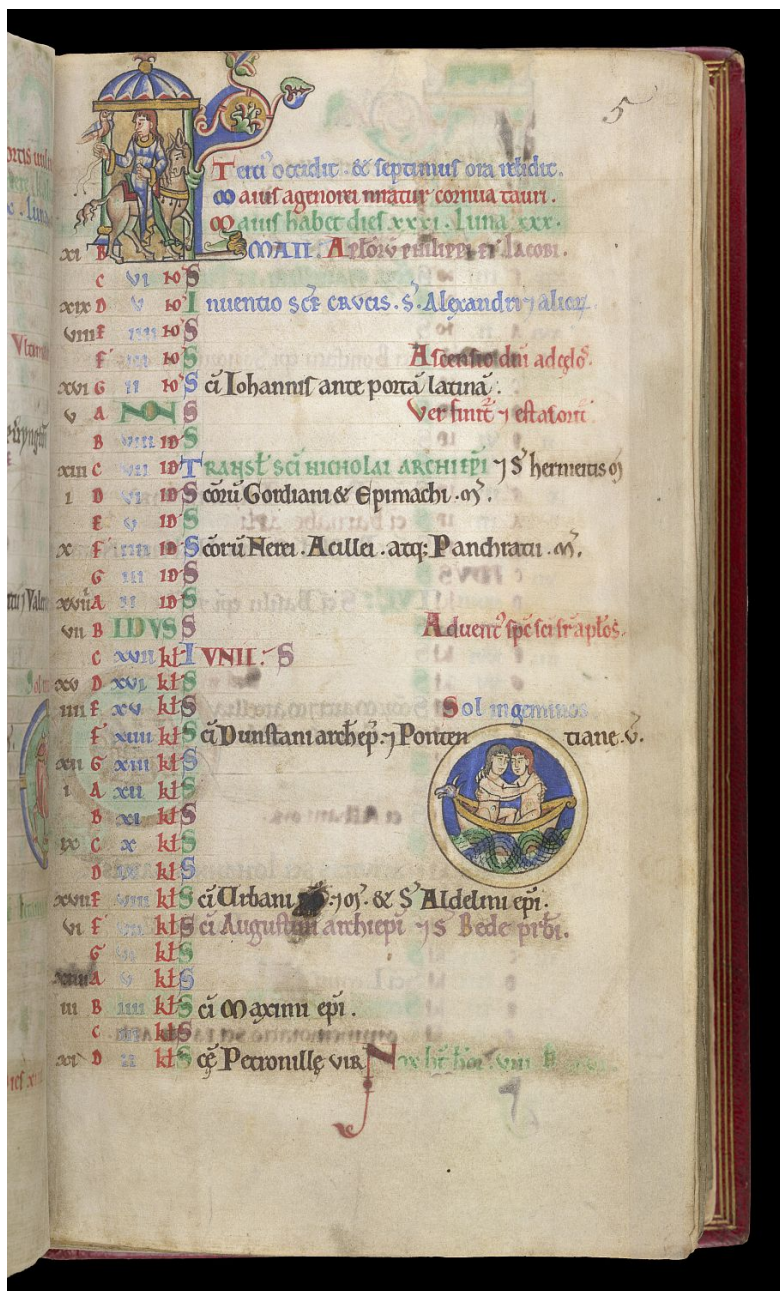 5
Terciꝰ occidit · & septimus ora relidit.
Maius agenorei miratur cornua tauri.
Maius habet dies xxxi. Luna xxx.
xi B MAII. Aplorū philippi et Iacobi.
C vi no S
xix D v no Inuentio scē crucis. S. Alexandri ⁊ alior
viii E iiii no S
F iii no S Ascensio dni ad celos.
xvi G ii no Sci Iohannis ante portā latinā.
v A N S Ver finit ⁊ estas orit.
B viii id S
xiii C vii id Transl sci Nicholai archiepi ⁊ S hermetis m
i D vi id Scorū Gordiani & Epimachi. m.
E v id S
x F iiii id Scorū Nerei. Acillei. atq: Panchratii. m.
G iii id S
xvii A ii id S
vii B IDVS S Aduentꝰ spc sci sr aplos.
C xvii kl IVNII. S
xv D xvi kl S
iiii E xv kl S Sol in geminos
F xiiii kl Sci Dunstani archiep. ⁊ Poten tiane. v.
xii G xiii kl S
i A xii kl S
B xi kl S
ix C x kl S
D ix kl S
xvii E viii kl Sci Urbani ⁊ m. & S Aldelmi epi.
vi F vii kl Sci Augustini archiepi ⁊ S Bede prbi.
G vi kl S
xiiii A v kl S
iii B iiii kl Sci Maximi epi.
C iii kl S
xi D ii kl Scē Petronillę vir Nox ht hor. viii